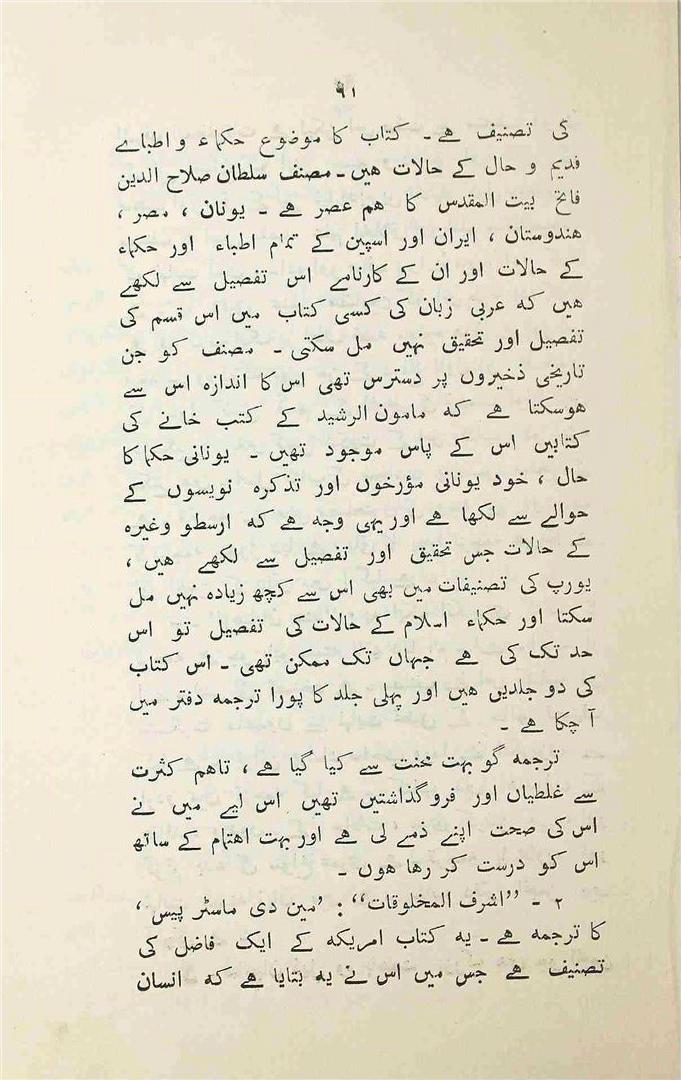 ۹۱
کی تصنیف ہے۔ کتاب کا موضوع حکماء و اطباے
قدیم و حال کے حالات ہیں۔ مصنف سلطان صلاح الدین
فاتح بیت المقدس کا ہم عصر ہے۔ یونان ، مصر ،
ہندوستان ، ایران اور اسپین کے تمام اطباء اور حکماء
کے حالات اور ان کے کارنامے اس تفصیل سے لکھے
ہیں کہ عربی زبان کی کسی کتاب میں اس قسم کی
تفصیل اور تحقیق نہیں مل سکتی۔ مصنف کو جن
تاریخی ذخیروں پر دسترس تھی اس کا اندازہ اس سے
ہوسکتا ہے کہ مامون الرشید کے کتب خانے کی
کتابیں اس کے پاس موجود تھیں۔ یونانی حکما کا
حال ، خود یونانی مؤرخوں اور تذکرہ نویسوں کے
حوالے سے لکھا ہے اور یہی وجہ ہے کہ ارسطو وغیرہ
کے حالات جس تحقیق اور تفصیل سے لکھے ہیں ،
یورپ کی تصنیفات میں بھی اس سے کچھ زیادہ نہیں مل
سکتا اور حکماء اسلام کے حالات کی تفصیل تو اس
حد تک کی ہے جہاں تک ممکن تھی۔ اس کتاب
کی دو جلدیں ہیں اور پہلی جلد کا پورا ترجمہ دفتر میں
آ چکا ہے۔
ترجمہ گو بہت محنت سے کیا گیا ہے ، تاہم کثرت
سے غلطیاں اور فروگذاشتیں تھیں اس لیے میں نے
اس کی صحت اپنے ذمے لی ہے اور بہت اہتمام کے ساتھ
اس کو درست کر رہا ہوں۔
۲ - ’’اشرف المخلوقات‘‘ : ’مین دی ماسٹر پیس‘
کا ترجمہ ہے۔ یہ کتاب امریکہ کے ایک فاضل کی
تصنیف ہے جس میں اس نے یہ بتایا ہے کہ انسان